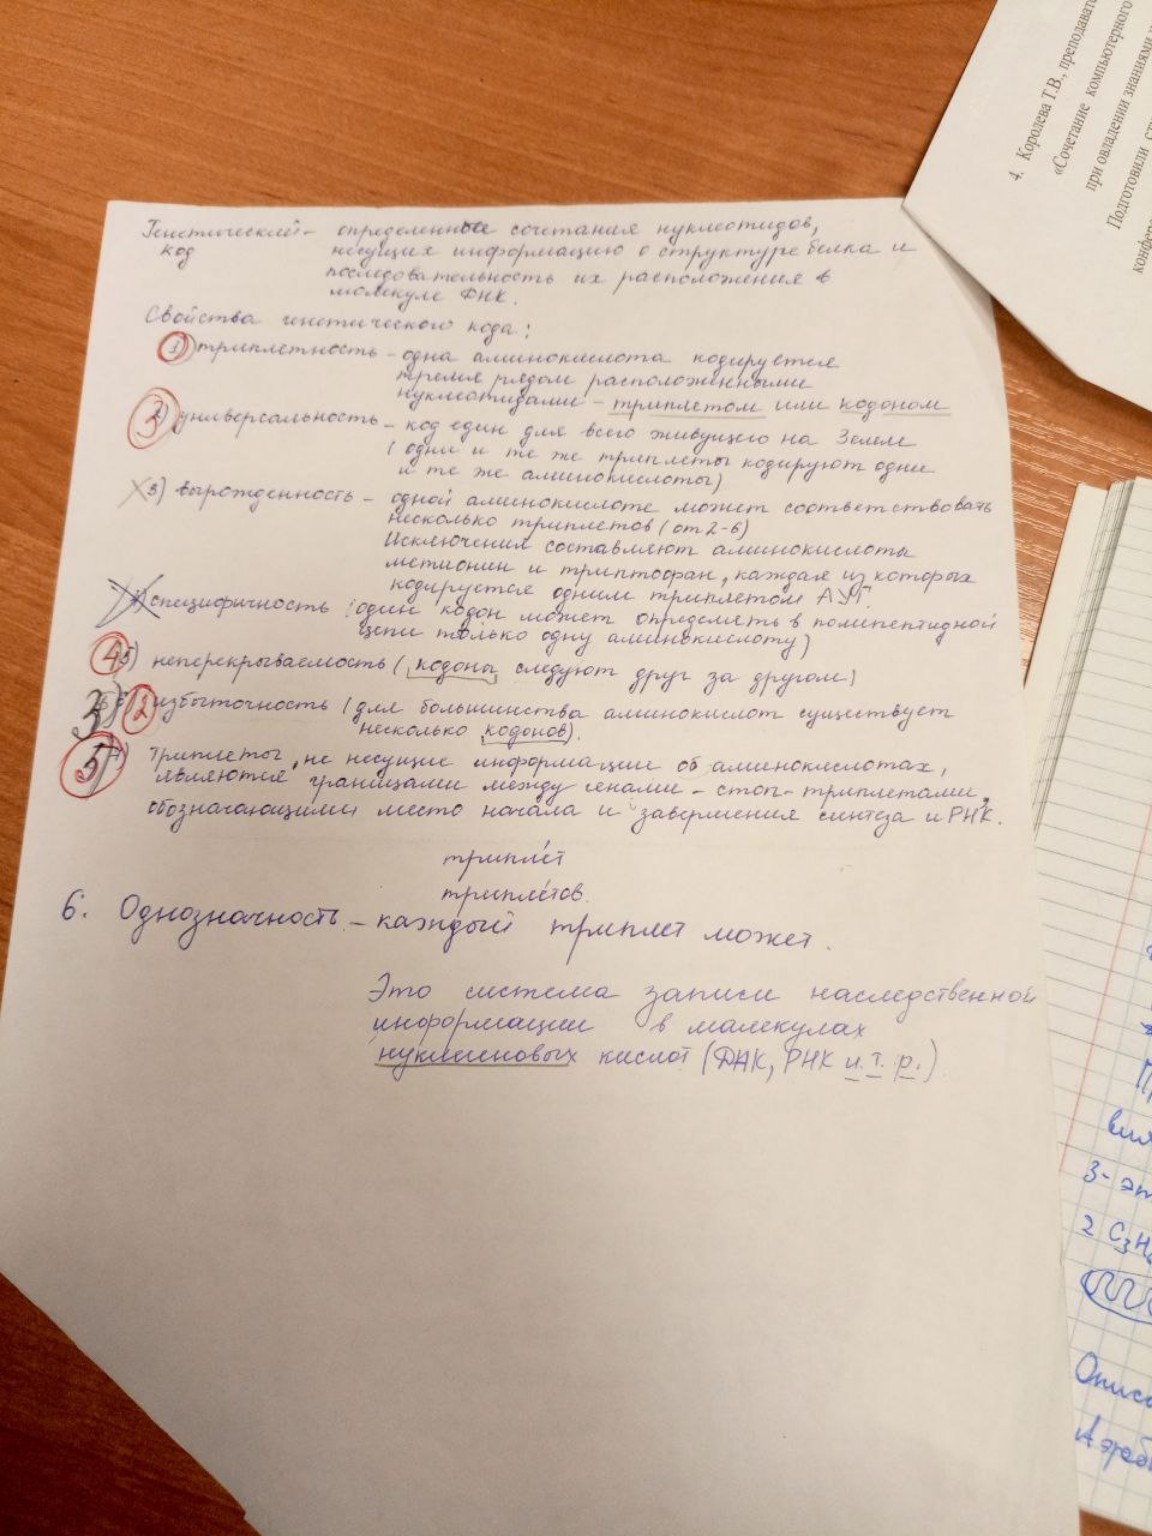 Генетический – определенные сочетания нуклеотидов,
код несущих информацию о структуре белка и
последовательность их расположения в
молекуле ДНК.
Свойства генетического кода:
1) триплетность – одна аминокислота кодируется
тремя рядом расположенными
нуклеотидами – триплетом или кодоном
3) универсальность – код един для всего живущего на Земле
(одни и те же триплеты кодируют одни
и те же аминокислоты)
3) вырожденность – одной аминокислоте может соответствовать
несколько триплетов (от 2-6)
Исключения составляют аминокислоты
метионин и триптофан, каждая из которых
кодируется одним триплетом АУГ.
специфичность (один кодон может определять в полипептидной
цепи только одну аминокислоту)
4 5) неперекрываемость (кодоны следуют друг за другом)
3) 2 избыточность (для большинства аминокислот существует
несколько кодонов).
5) Триплеты, не несущие информации об аминокислотах,
являются границами между генами – стоп-триплетами,
обозначающими место начала и завершения синтеза иРНК.
трипле́т
трипле́тов.
6. Однозначность – каждый триплет может.
Это система записи наследственной
информации в малекулах
нуклеиновых кислот (ДНК, РНК и.т.р.)
4. Королева Т.В., преподавате
«Сочетание компьютерного
при овладении знаниями
Подготовили
конфер
3- эт
2 C₃H
Описа
Аэроб